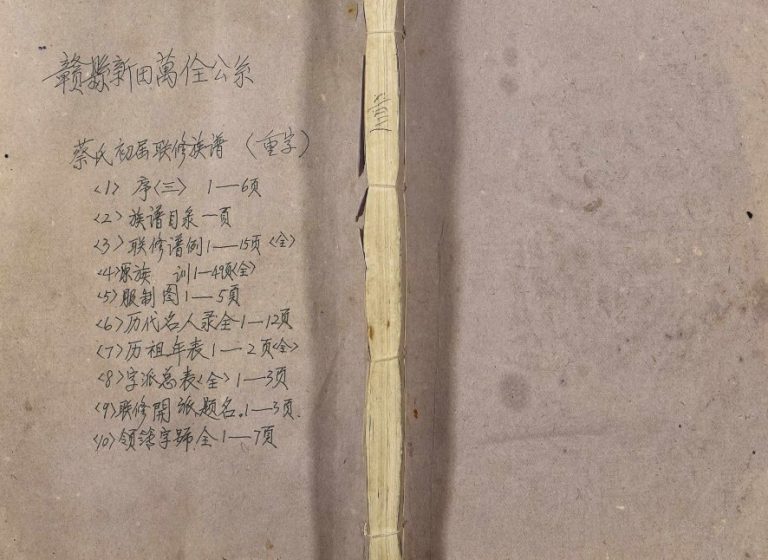 赣縣新田萬佺公系
蔡氏初届联修族谱（重字）
<1> 序<三> 1—6页
<2> 族谱目录一頁
<3> 联修谱例1—15页<全>
<4> 家族 训1—49页<全>
<5> 服制图1—5頁
<6> 历代名人录全1—12頁
<7> 历祖年表1—2页<全>
<8> 字派总表<全>1—3頁
<9> 联修開派题名.1—3頁.
<10> 领谱字號.全1—7頁
壹